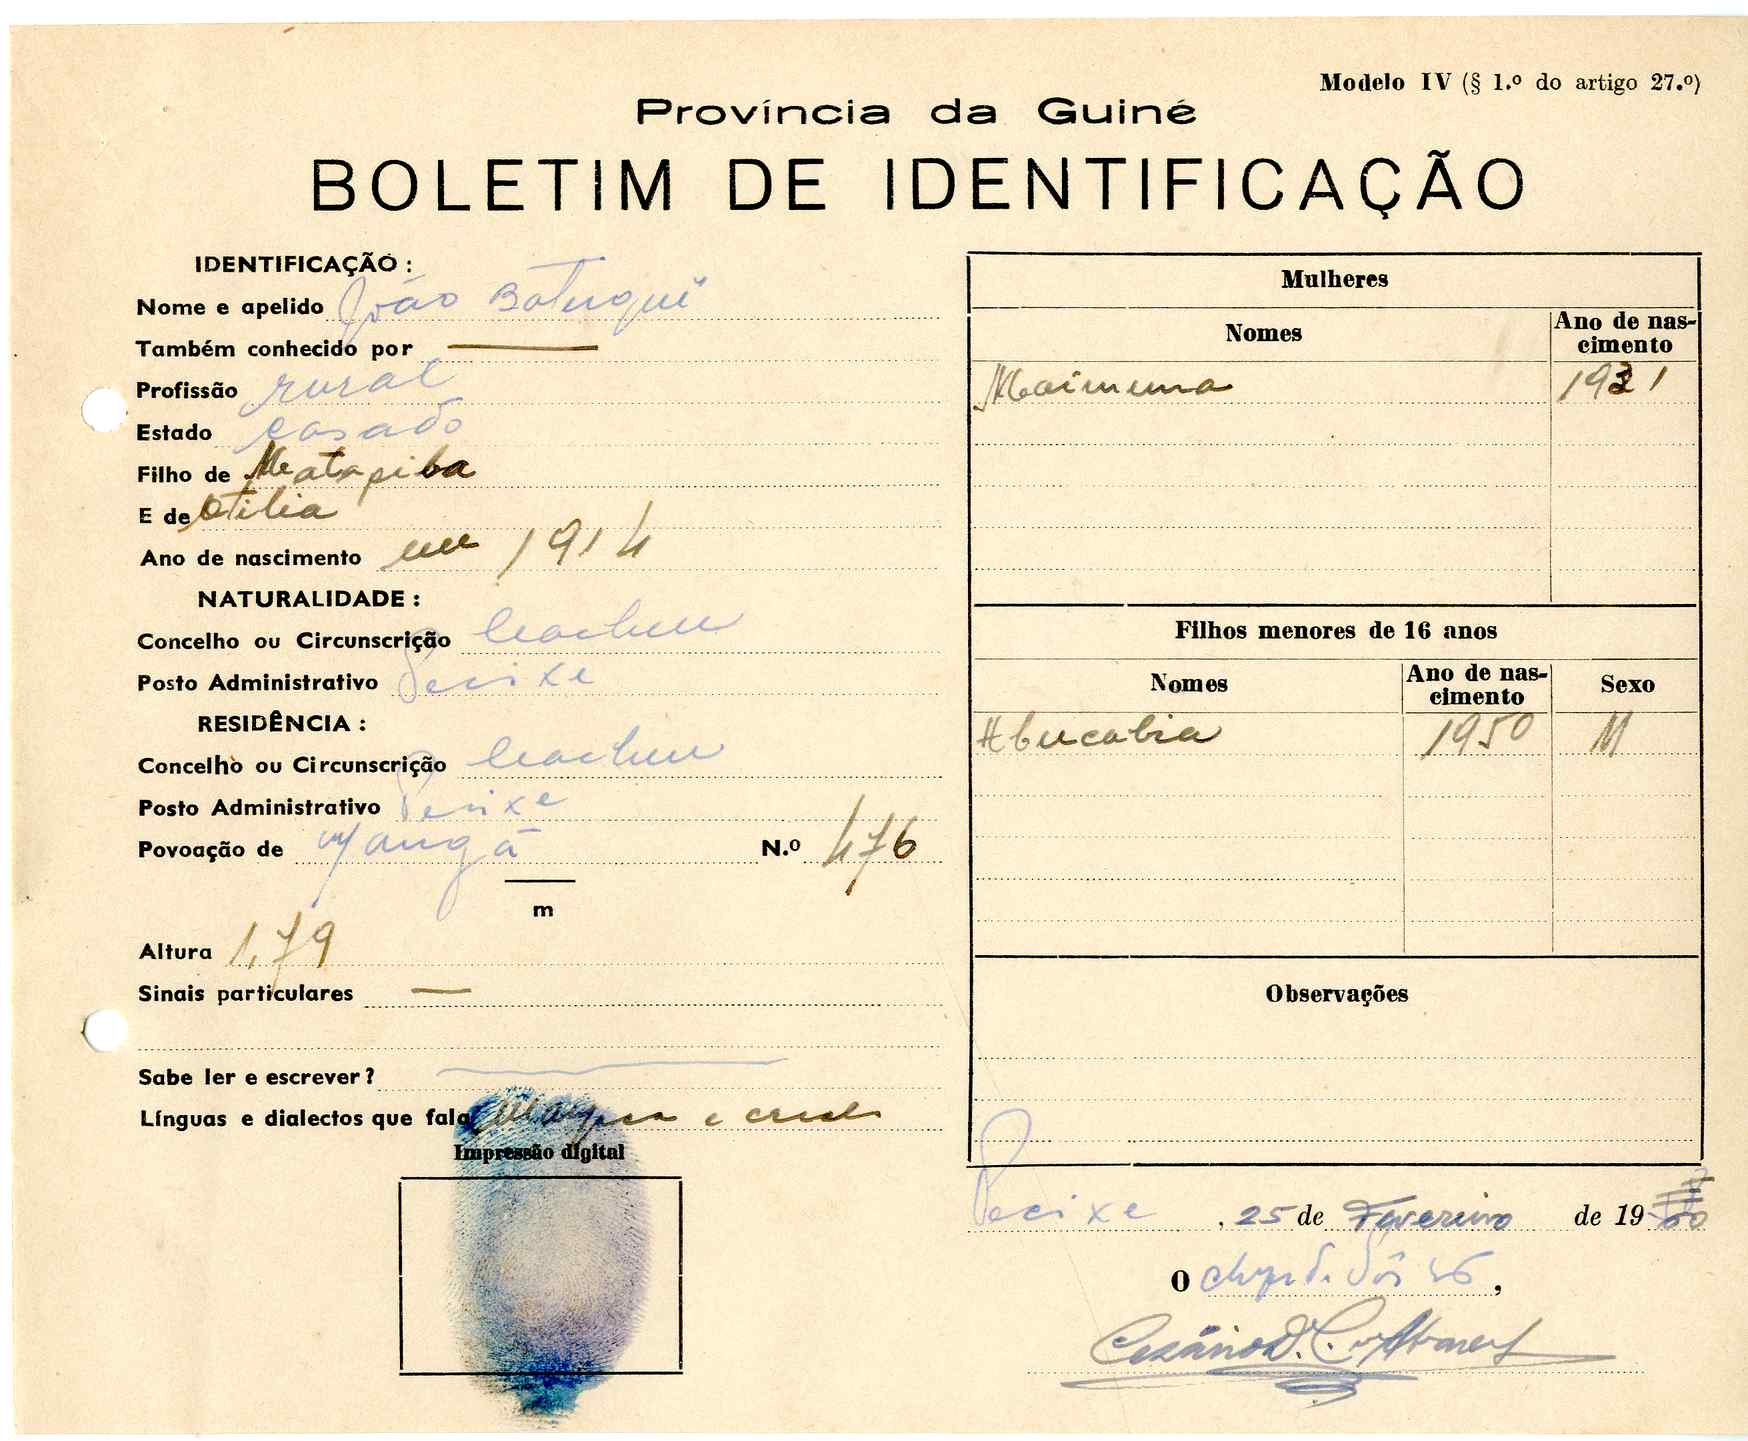 Modelo IV (§ 1.º do artigo 27.º)
Província da Guiné
BOLETIM DE IDENTIFICAÇÃO
IDENTIFICAÇÃO :
Nome e apelido João
Também conhecido por —
Profissão rural
Estado casado
Filho de Matapiba
E de Otilia
Ano de nascimento em 1914
NATURALIDADE :
Concelho ou Circunscrição Cacheu
Posto Administrativo Pecixe
RESIDÊNCIA :
Concelho ou Circunscrição Cacheu
Posto Administrativo Pecixe
Povoação de N.º 476
m
Altura 1,79
Sinais particulares —
Sabe ler e escrever?
Línguas e dialectos que fala e
Impressão digital
Mulheres
Nomes Ano de nas-
cimento
Maimuna 1931
Filhos menores de 16 anos
Nomes Ano de nas-
cimento Sexo
Abucabia 1950 M
Observações
Pecixe, 25 de Fevereiro de 19
O ,